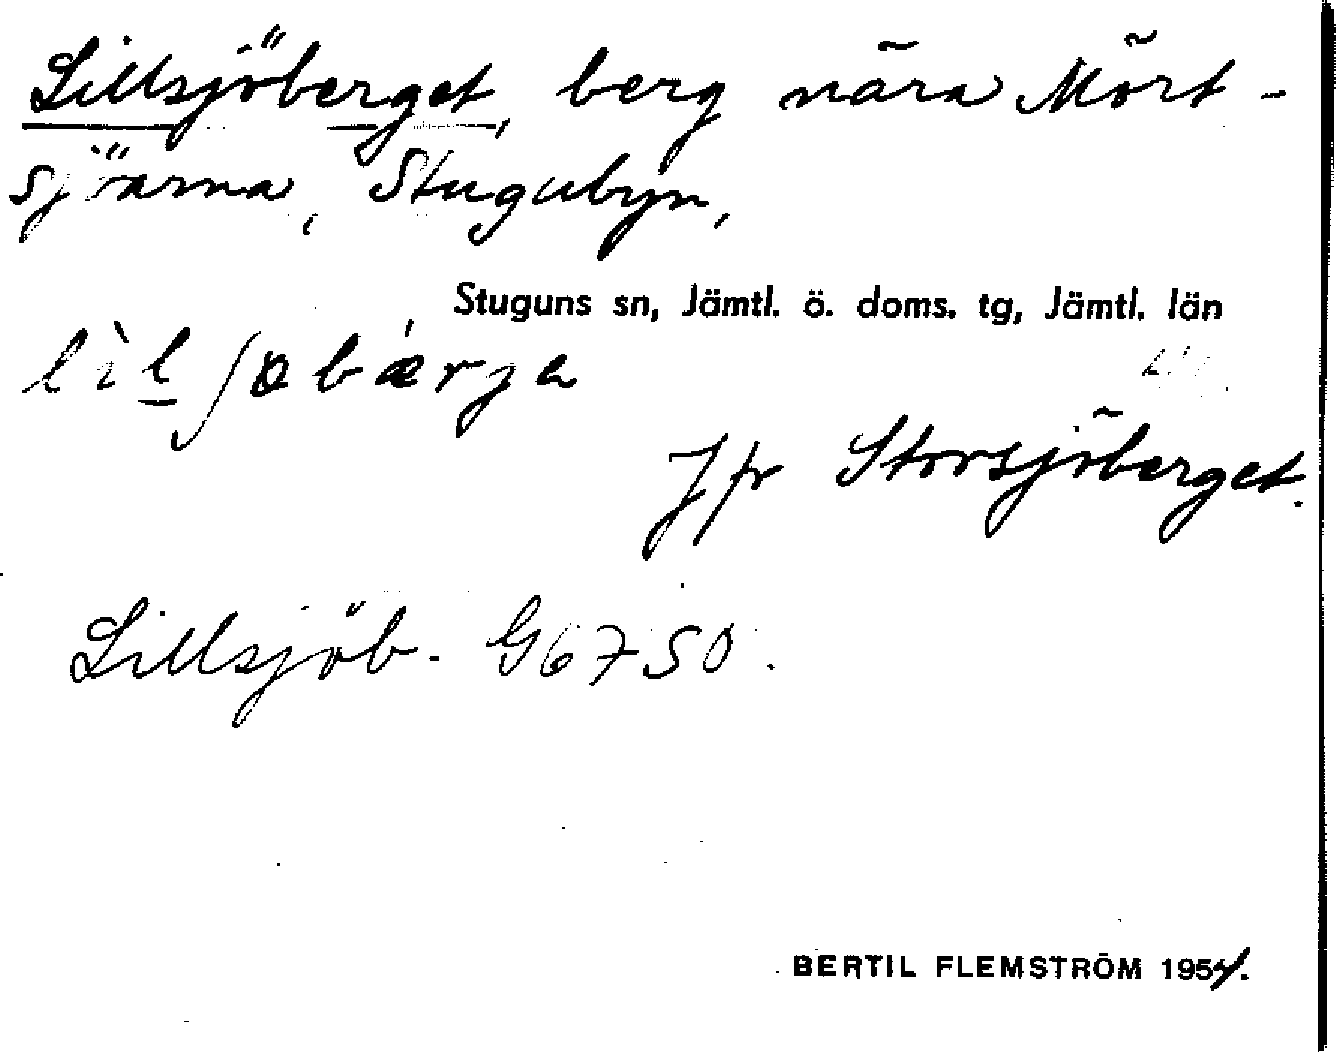 Lillsjöberget, berg nära Mört-
sjöarna, Stugubyn,
Stuguns sn, Jämtl. ö. doms. tg, Jämtl. län
lìlʃøbǽrja
Jfr Storsjöberget.
Lillsjöb. G6750.
BERTIL FLEMSTRÖM 1954.